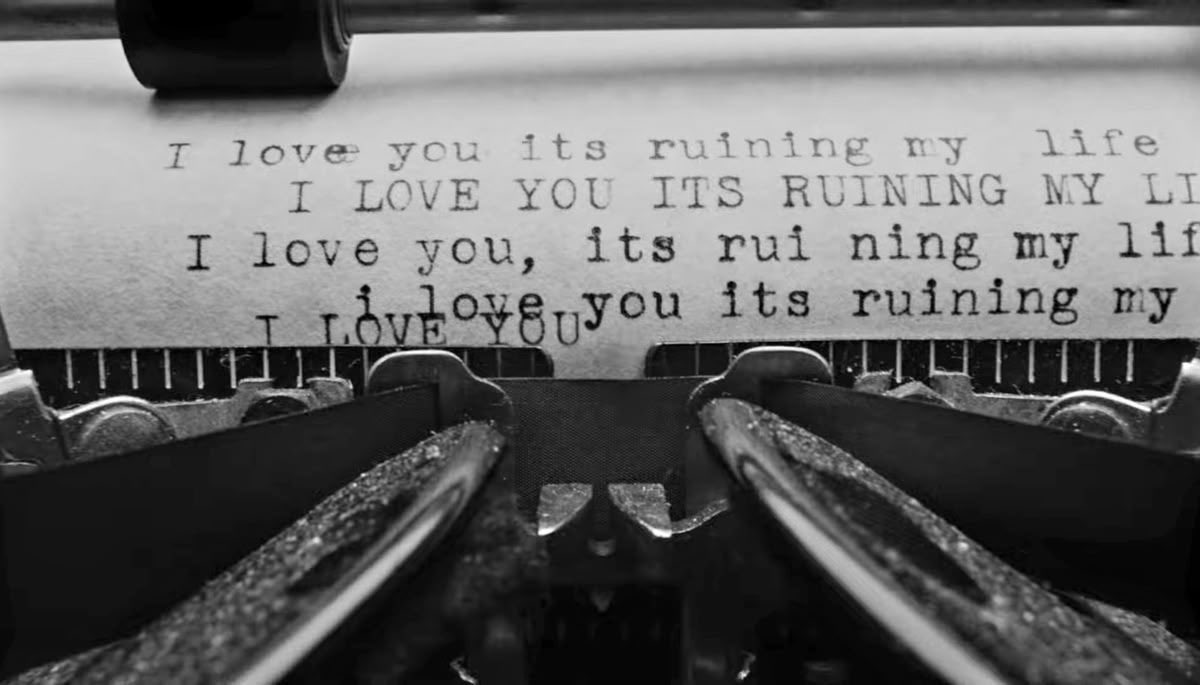 I love you its ruining my life
I LOVE YOU ITS RUINING MY LI
I love you, its rui ning my lif
i love you its ruining my
I LOVE YOU